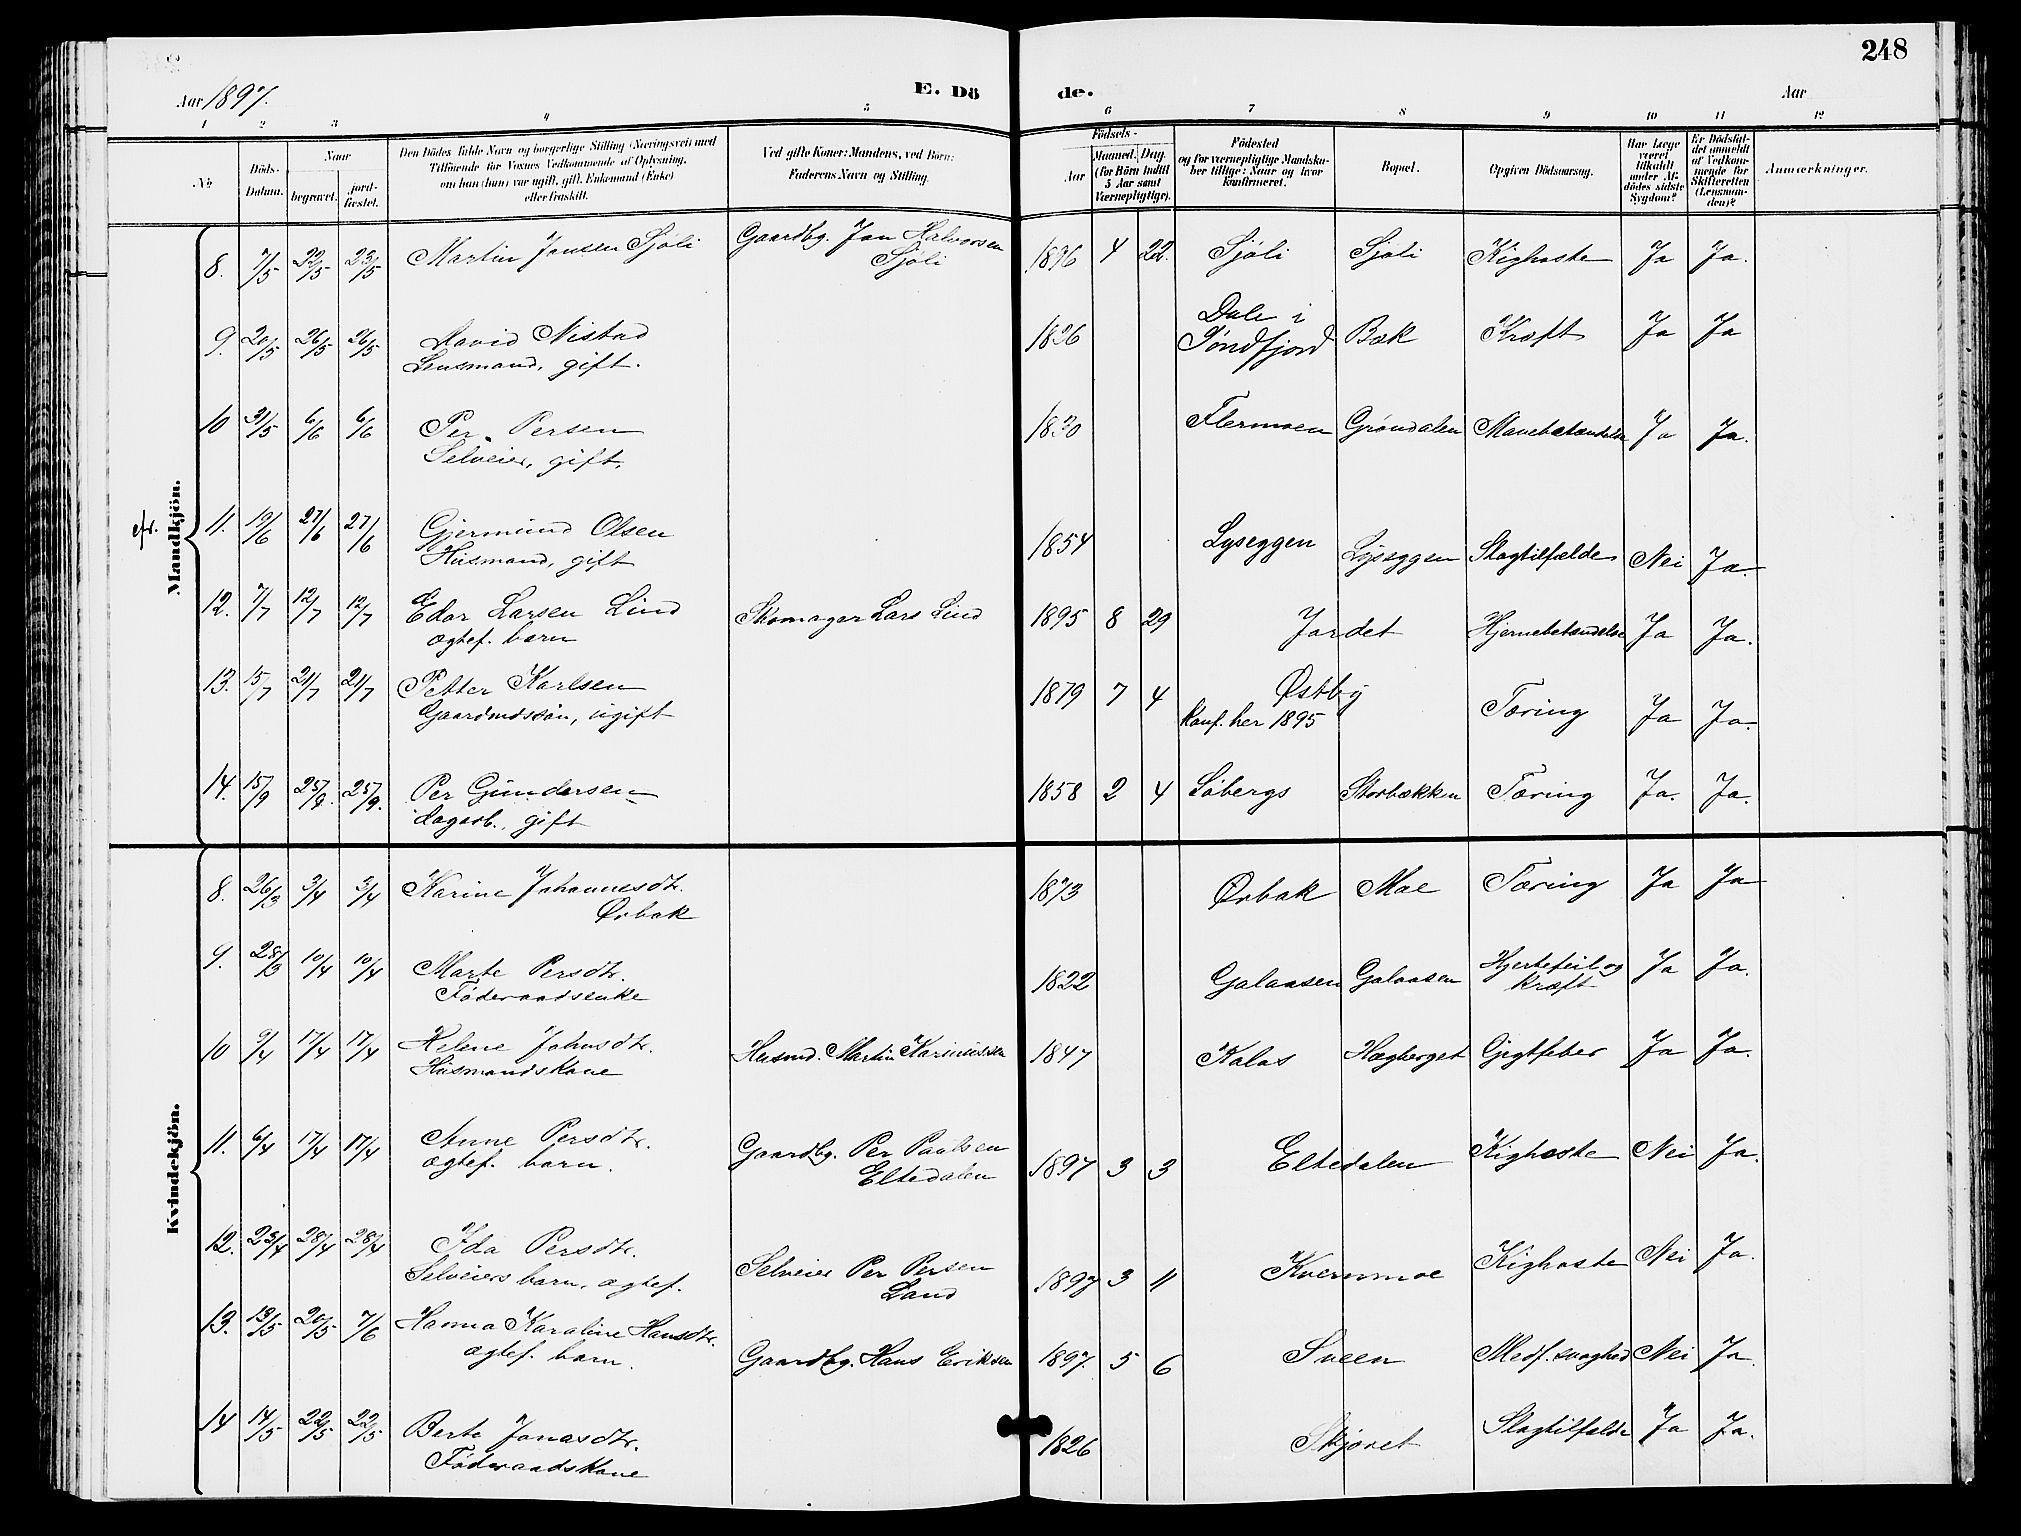 248
Aar 1897.
E. Dö de.
Aar
1 2 3 4 5 6 7 8 9 10 11 12
No
Döds-Datum.
Naar
begravet.
jord-fæstet.
Den Dödes fulde Navn og borgerlige Stilling (Næringsvei) med Tilföiende for Voxnes Vedkommende af Oplysning, om han (hun) var ugift, gift, Enkemand (Enke) eller fraskilt.
Ved gifte Koner: Mandens, ved Börn: Faderens Navn og Stilling.
Födsels-
Aar
Maaned. Dag.
(for Börn indtil 5 Aar samt Værnepligtige).
Födested og for værnepligtige Mandskaber tillige: Naar og hvor konfirmeret.
Bopæl.
Opgiven Dödsaarsag.
Har Læge været tilkaldt under Afdödes sidste Sygdom?
Er Dödsfaldet anmeldt af Vedkommende for Skifteretten (Lensmanden)?
Anmærkninger.
Mandkjön.
8. 7/5 22/5 23/5 Martin Jansen Sjöli Gaardbg. Jan Halvorsen Sjöli 1896 4 22. Sjöli Sjöli Kighoste Ja Ja.
9. 20/5 26/5 26/5 David Nistad Lensmand, gift. 1826 Dale i Söndfjord Bæk Kræft Ja Ja
10 31/5 6/6 6/6 Per Persen Selveier, gift. 1830 Flermoen Gröndalen Mavebetændelse Ja Ja.
11. 19/6 27/6 27/6 Gjermund Olsen Husmand, gift 1854 Lyseggen Lyseggen Slagtilfælde Nei Ja.
12. 7/7 12/7 12/7 Edor Larsen Lind ægtef. barn Skomager Lars Lind 1895 8 29 Jordet Hjernebetændelse Ja Ja.
13. 15/7 21/7 21/7 Petter Karlsen Gaardmdssön, ugift 1879 7 4 Østby konf. her 1895 Tæring Ja Ja.
14. 15/9 25/9. 25/9. Per Gundersen dagarb., gift 1858 2 4 Söbergs Storbækken Tæring Ja. Ja.
Kvindekjön.
8. 26/3 3/4 3/4 Karine Johannesdtr. Ørbæk 1873 Ørbæk Moe Tæring Ja Ja
9. 28/3 10/4 10/4 Marte Persdtr. Föderaadsenke 1822 Galaasen Galaasen Hjertefeil og kræft Ja Ja.
10 9/4 17/4 17/4 Helene Johnsdtr. Husmandskone Husmd. Martin Karinussen 1847 Kolos Hægberget Gigtfeber Ja Ja.
11. 6/4 17/4 17/4 Anne Persdtr. ægtef. barn. Gaardbg. Per Paulsen Eltedalen 1897 3 3 Eltedalen Kighoste Nei Ja.
12. 23/4 28/4 28/4 Ida Persdtr. Selveiers barn, ægtef. Selveier Per Persen Land 1897 3 11 Kvernmoe Kighoste Nei Ja.
13. 13/5 20/5 7/6 Hanna Karoline Hansdtr. ægtef. barn. Gaardbg. Hans Eriksen 1897. 5 6 Sveen Medf. svaghed Nei Ja
14 14/5 22/5 22/5 Berte Jonasdtr. Föderaadskone 1826 Skjæret Slagtilfælde Ja Ja.